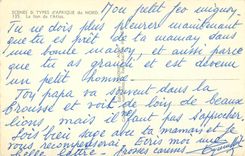 SCÈNES & TYPES D'AFRIQUE du NORD
Mon petit
Tu ne dois plus pleurer maintenant
que tu es prêt de ta maman dans
une boule maison, et aussi parce
que tu as grandi et est devenu
un petit homme.
Ton papa va souvent dans la
brousse et voit de loin de beaux
lions mais il faut pas s'approcher.
Sois bien sage avec ta maman et je
vous recompenserai. Ecris moi une
belle lettre. Grosses caresses